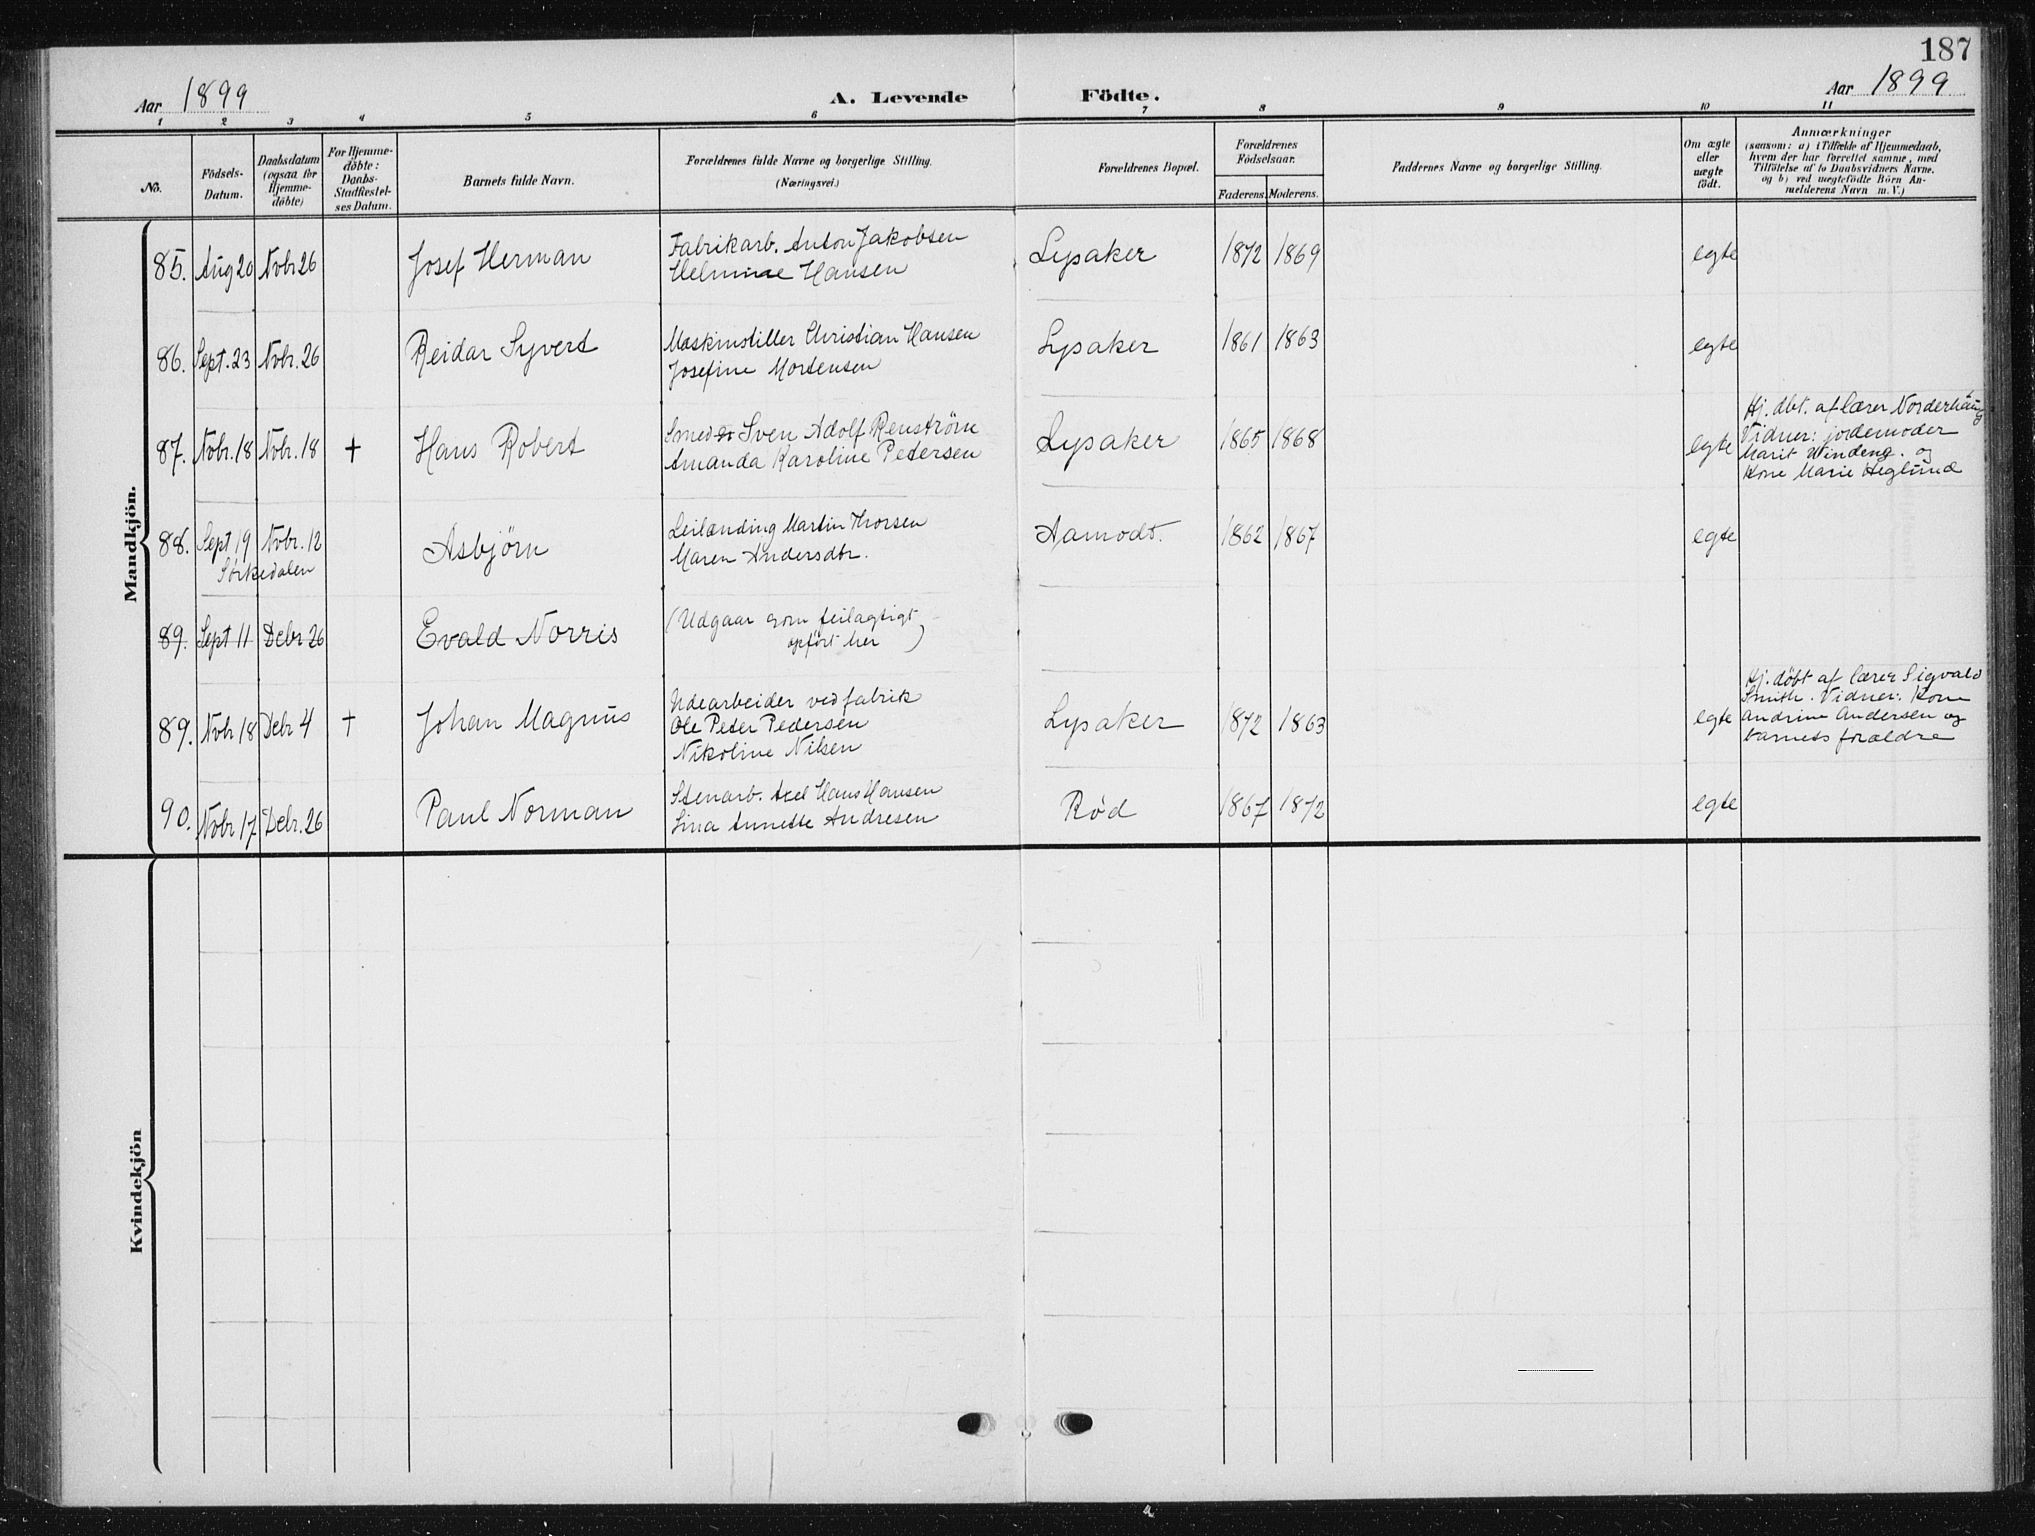 187
Aar 1899
A. Levende Födte.
Aar 1899
1 2 3 4 5 6 7 8 9 10 11
No.
Födsels-
Datum.
Daabsdatum
(ogsaa for
Hjemme-
döbte)
For Hjemme-
döbte:
Daabs-
Stadfæstel-
ses Datum.
Barnets fulde Navn.
Forældrenes fulde Navne og borgerlige Stilling.
(Næringsvei.)
Forældrenes Bopæl.
Forældrenes
Födselsaar.
Faderens. Moderens.
Faddernes Navne og borgerlige Stilling.
Om ægte
eller
uægte
født.
Anmærkninger
(saasom: a) i Tilfælde af Hjemmedaab,
hvem der har forrettet samme, med
Tilföielse af to Daabsvidners Navne,
og b) ved uægtefödte Börn An-
melderens Navn m. V.)
Mandkjön.
85. Aug 20 Nobr 26 Josef Herman
Fabrikarb. Anton Jakobsen
Helmine Hansen
Lysaker 1872 1869 egte
86. Sept. 23 Nobr. 26 Reidar Syvert
Maskinstiller Christian Hansen
Josefine Mortensen
Lysaker 1861 1863 egte
87. Nobr. 18 Nobr. 18 + Hans Robert
Smed Sven Adolf Renström
Amanda Karoline Petersen
Lysaker 1865 1868 egte
Hj. dbt. af lærer Norderhaug
Vidner: jordemoder
Marit Windeng. og
Kone Marie Heglund
88. Sept 19 Nobr. 12 Asbjörn
Sørkedalen
Leilænding Martin Thorsen
Maren Andersdtr.
Aamodt. 1862 1867 egte
89. Sept 11 Debr 26 Evald Norris
(Udgaar som feilagtigt
opført her)
89. Nobr 18 Debr 4 + Johan Magnus
Udearbeider ved fabrik
Ole Peter Pedersen
Nikoline Nilsen
Lysaker 1872 1863 egte
Hj. døbt af lærer Sigvald
Smith. Vidner: Kone
Andrine Andersen og
barnets forældre
90. Nobr 17 Debr. 26 Paul Norman
Stenarb. Axel Hans Hansen
Lina Annette Andresen
Rød 1867 1872 egte
Kvindekjön